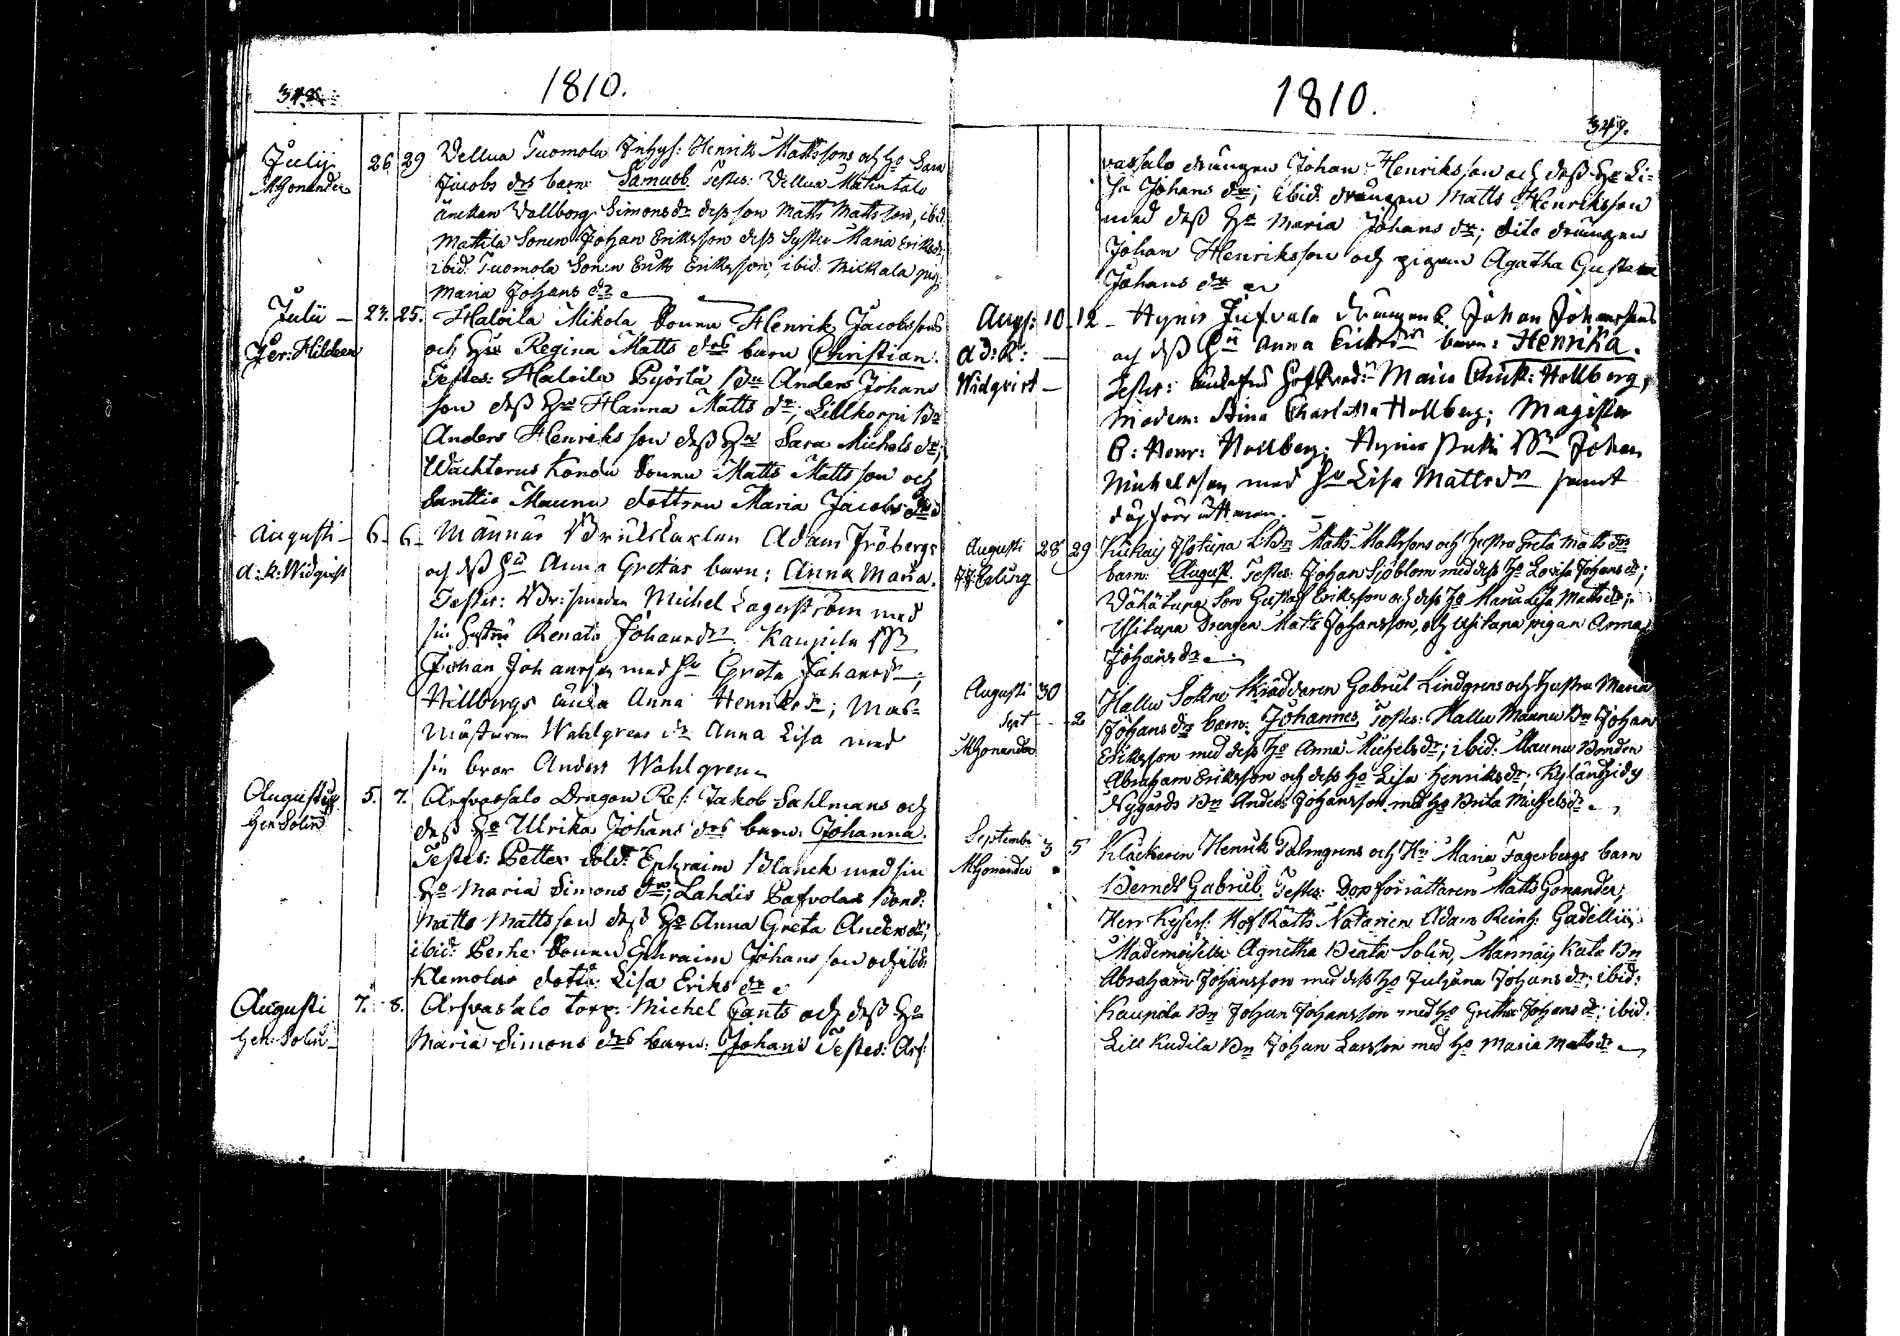 348.
1810.
Julij 26 29 Vellua Tuomola Inhys: Henrik Mattssons och Ho Sara
MGonander Jacobs drs barn Samuel. Testes: Vellua Matintalo
änckan Vallborg Simonsdr dess son Matts Mattsson, ibid
Mattila Sonen Johan Eriksson dess Syster Maria Eriksdr,
ibid. Tuomola Sonen Erik Eriksson, ibid Mickala pig.
Maria Johans dr
Julii 23. 25. Haloila Mikola Henrik Jacobssons
Jer: Hildeen och Regina Matts drs barn Christian.
Testes: Haloila Pyörlä Bn Anders Johans
son dess Hanna Matts dr; Lillkorpi Bn
Anders Henriks son dess Sara Michels dr;
Wächterus Konda Matts Matts son och
Santtio Maunu dottren Maria Jacobs dr
Augusti 6. 6. Männäs Adam Fröbergs
A: R: Widqvist och dess Anna Gretas barn: Anna Maria.
Testes: Michel Lagerström med
sin hustru Renata Johansdr; Kaupila
Johan Johansson med Greta Johansdr;
Hillbergs änka Anna Henriksdr; Mas-
mästaren Wahlgrens dr Anna Lisa med
sin bror Anders Wahlgren
Augusti 5. 7. Arfvassalo Dragon Res: Jakob Sahlmans och
Hen Solin dess Ho Ulrika Johans drs barn: Johanna.
Testes: Petter Sold: Ephraim Blanck med sin
Ho Maria Simons dr; Lahdis Pafvolas Bond:
Matts Mattsson dess Ho Anna Greta Andersdr;
ibid: Perhe Ephraim Johans son och ibid
Klemolas dottr: Lisa Eriks dr
Augusti 7. 8. Arfvassalo torp: Michel Gants och dess Ho
Hen: Solin Maria Simons drs barn: Johan Testes: Arf-
1810.
349.
vassalo drängen Johan Henriksson och dess Ho Li-
sa Johans dr; ibid. drängen Matts Henriksson
med dess Ho Maria Johans dr; dito drängen
Johan Henriksson och pigan Agatha Gustava
Johans dr
Augs: 10 12 Hynis Jufvala drängens Johan Johanssons
Ad: R: och dess Anna Eriksdrs barn: Henrika.
Widqvist Testes: Maria Hollberg,
Madem: Stina Charlotta Hollberg; Magister
C: Henr: Hollberg; Hynis Putti Johan
Michelsson med Lisa Mattsdr samt
döpförrättaren.
Augusti 28 29 Kukais Isotupa Bn Matts Mattssons och hustru Greta Matts drs
Euling barn: August. Testes: Johan Sjöblom med dess Ho Lovisa Johans dr;
Vähätupa Son Gustaf Eriksson och dess Ho Maria Lisa Matts dr;
Usitupa Drengen Matts Johansson, och Usitupa pigan Anna
Johans dr
Augusti 30 Hallu Sockne Skräddaren Gabriel Lindgrens och Hustru Maria
Sept 2 Johans drs barn: Johannes Testes: Hallu Maunu Bn Johan
MGonander Eriksson med dess Ho Anna Michelsdr; ibid. Maunu Bonden
Abraham Eriksson och dess Ho Lisa Henriksdr. Kylänpidy
Nygårds Bn Anders Johansson med Ho Brita Michelsdr
Septembr 3 5 Klåckaren Henrik Palmgrens och Maria Fagerbergs barn
MGonander Berndt Gabriel. Testes: Dopförrättaren Matts Gonander,
Herr Kejserl: HofRätts Notarien Adam Reinh: Gadellii,
Mademoiselle Agnetha Beata Solin, Männäis Kata Bn
Abraham Johansson med dess Ho Juliana Johans dr; ibid:
Kaupila Bn Johan Johansson med Ho Gretha Johans dr; ibid.
Lill Kudila Bn Johan Larsson med Ho Maria Matts dr